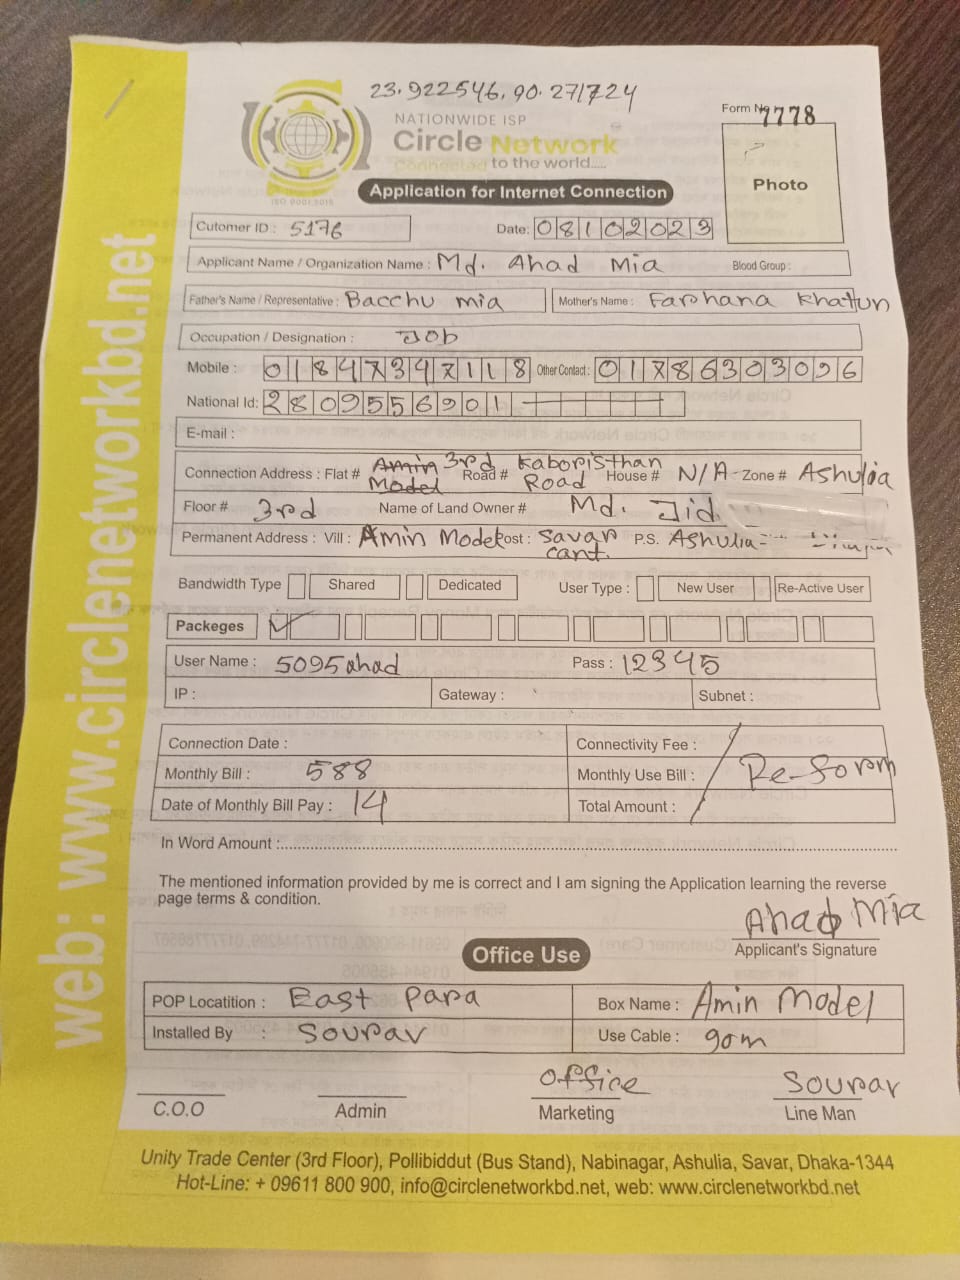 23.922546, 90.271724
NATIONWIDE ISP
Circle Network
Connected to the world.....
ISO 9001:2015
Form No 7778
Photo
Application for Internet Connection
Cutomer ID : 5176
Date: 08102023
Applicant Name / Organization Name : Md. Ahad Mia Blood Group :
Father's Name / Representative : Bacchu mia Mother's Name : Farhana Khatun
Occupation / Designation : Job
Mobile : 01847347118 Other Contact : 01786303096
National Id: 2809556901
E-mail :
Connection Address : Flat # Amin Model Road # 3rd Kaboristhan Road House # N/A Zone # Ashulia
Floor # 3rd Name of Land Owner # Md. Jid
Permanent Address : Vill : Amin Model Post : Savar cant. P.S. Ashulia
Bandwidth Type Shared Dedicated User Type : New User Re-Active User
Packeges
User Name : 5095ahad Pass : 12345
IP : Gateway : Subnet :
Connection Date : Connectivity Fee :
Monthly Bill : 588 Monthly Use Bill : Re-form
Date of Monthly Bill Pay : 14 Total Amount :
In Word Amount :
The mentioned information provided by me is correct and I am signing the Application learning the reverse
page terms & condition.
Ahad Mia
Applicant's Signature
Office Use
POP Locatition : East Para Box Name : Amin Model
Installed By : Sourav Use Cable : 90m
Office Sourav
C.O.O Admin Marketing Line Man
Unity Trade Center (3rd Floor), Pollibiddut (Bus Stand), Nabinagar, Ashulia, Savar, Dhaka-1344
Hot-Line: + 09611 800 900, info@circlenetworkbd.net, web: www.circlenetworkbd.net
web: www.circlenetworkbd.net